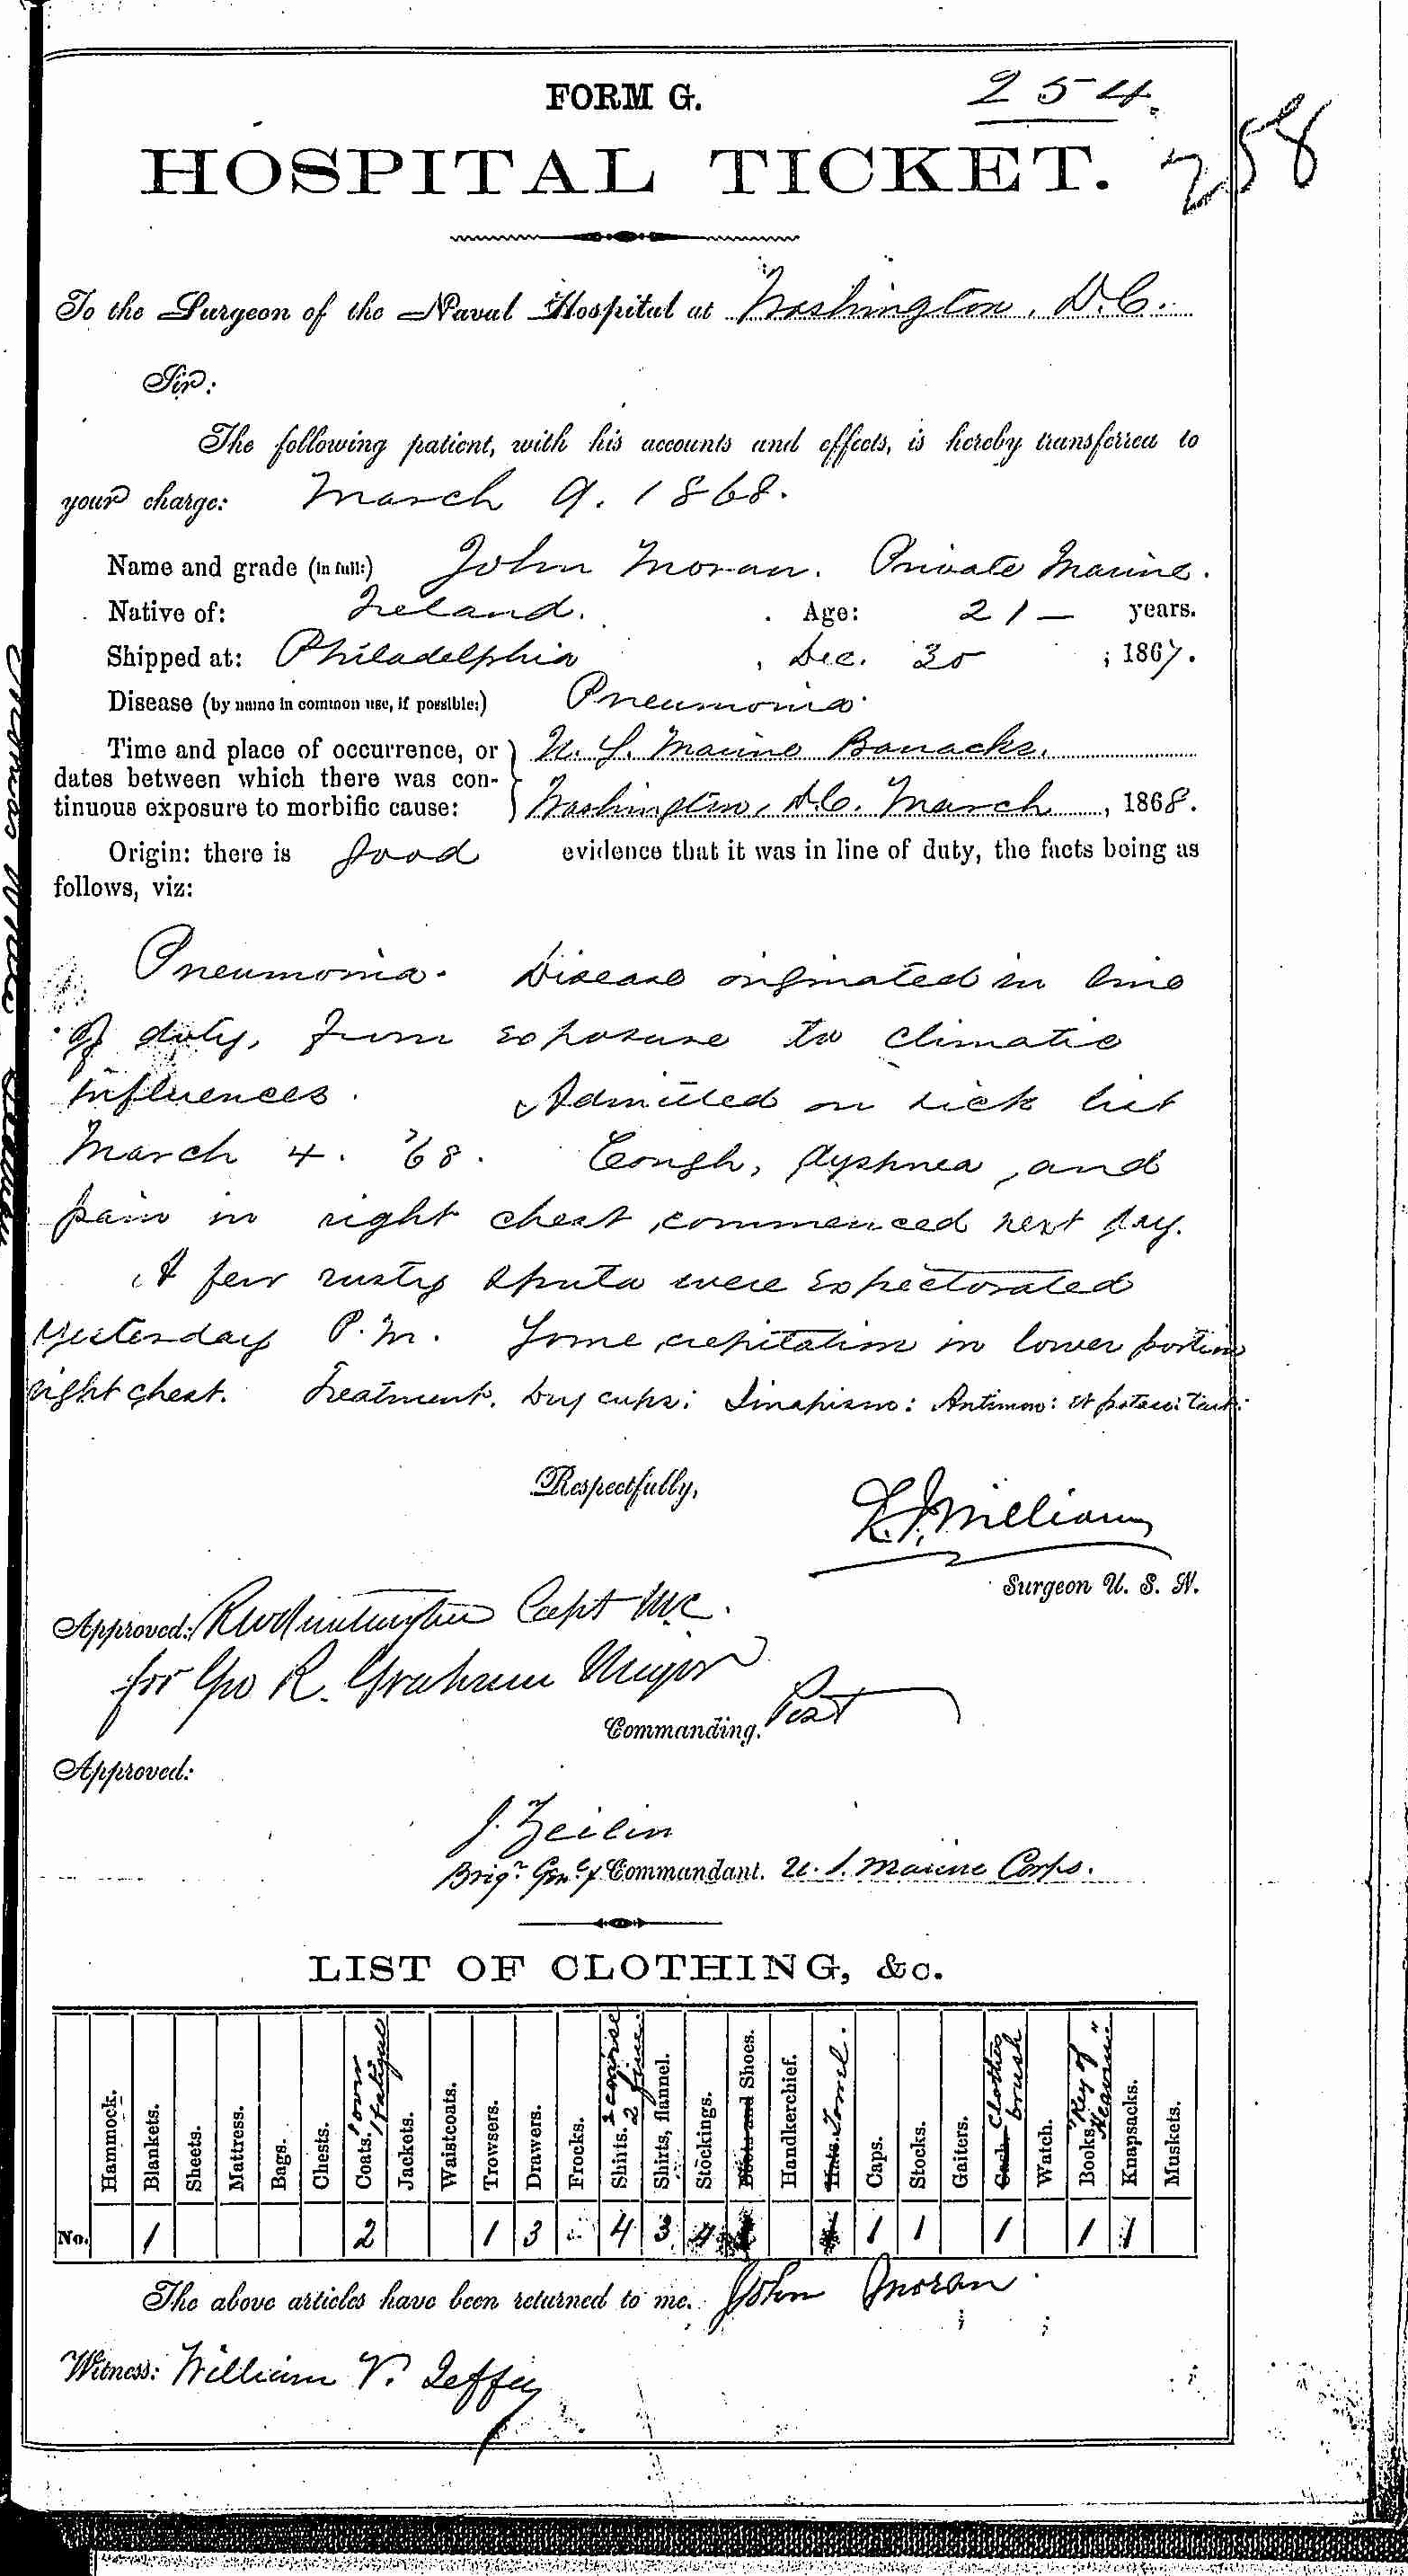 FORM G.
254.
258
HOSPITAL TICKET.
To the Surgeon of the Naval Hospital at Washington, D.C.
Sir:
The following patient, with his accounts and effects, is hereby transferred to
your charge: March 9. 1868.
Name and grade (in full:) John Moran. Private Marine.
Native of: Ireland. Age: 21 — years.
Shipped at: Philadelphia, Dec. 30; 1867.
Disease (by name in common use, if possible:) Pneumonia.
Time and place of occurrence, or U. S. Marine Barracks.
dates between which there was con-
tinuous exposure to morbific cause: Washington, D.C. March, 1868.
Origin: there is good evidence that it was in line of duty, the facts being as
follows, viz:
Pneumonia. Disease originated in line
of duty, from exposure to climatic
influences. Admitted on sick list
March 4. '68. Cough, dyspnea, and
pain in right chest, commenced next day.
A few rusty sputa were expectorated
yesterday P.M. Some crepitation in lower portion
right chest. Treatment. Dry cups: Sinapism: Antimon: et potass: Tart:
Respectfully,
Surgeon U. S. N.
Approved: R W Huntington Capt MC.
for Geo R. Graham Major
Commanding. Post
Approved:
J. Zeilin
Brigr. Genl. & Commandant. U. S. Marine Corps.
LIST OF CLOTHING, &c.
Hammock. Blankets. Sheets. Mattress. Bags. Chests. Coats. 1 fatigue Jackets. Waistcoats. Trowsers. Drawers. Frocks. Shirts. 2 coarse 2 fine. Shirts, flannel. Stockings. Boots and Shoes. Handkerchief. Hats. Towel. Caps. Stocks. Gaiters. Clothes brush Watch. Books, "Key of Heaven" Knapsacks. Muskets.
No. 1 2 1 3 4 3 4 1 1 1 1 1 1
The above articles have been returned to me. John Moran
Witness: William V.